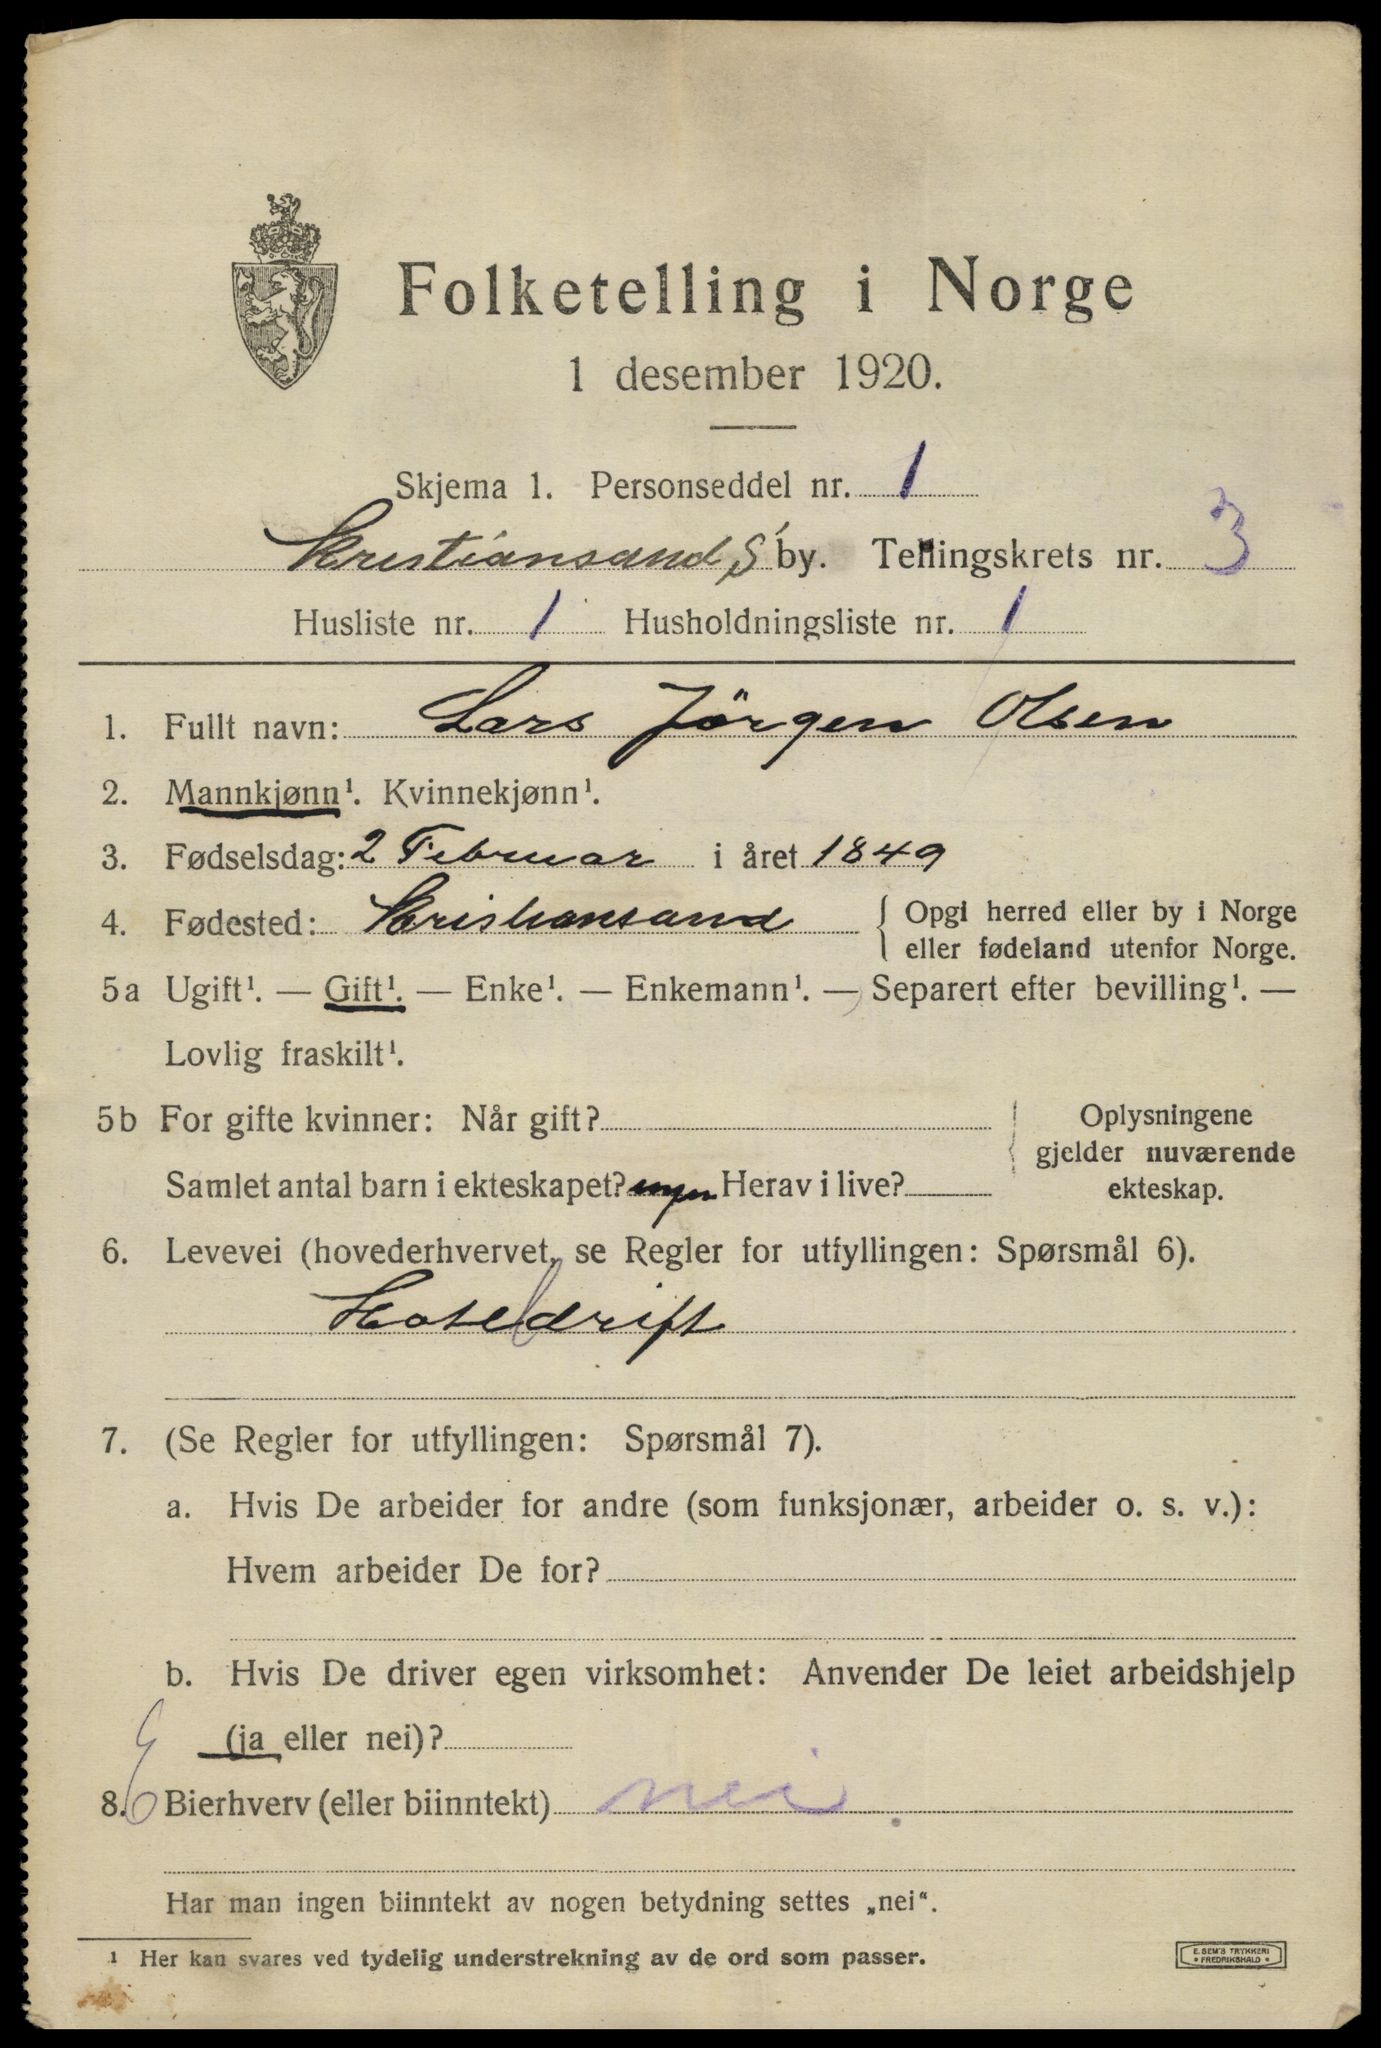 Folketelling i Norge
1 desember 1920.
Skjema 1. Personseddel nr. 1
Kristiansand S by. Tellingskrets nr. 3
Husliste nr. 1 Husholdningsliste nr. 1
1. Fullt navn: Lars Jörgen Olsen
2. Mannkjønn¹. Kvinnekjønn¹.
3. Fødselsdag: 2 Februar i året 1849
4. Fødested: Kristiansand { Opgi herred eller by i Norge
eller fødeland utenfor Norge.
5a Ugift¹. — Gift¹. — Enke¹. — Enkemann¹. — Separert efter bevilling¹. —
Lovlig fraskilt¹.
5b For gifte kvinner: Når gift? Oplysningene
gjelder nuværende
Samlet antal barn i ekteskapet? ingen Herav i live? ekteskap.
6. Levevei (hovederhvervet, se Regler for utfyllingen: Spørsmål 6).
Hoteldrift
7. (Se Regler for utfyllingen: Spørsmål 7).
a. Hvis De arbeider for andre (som funksjonær, arbeider o. s. v.):
Hvem arbeider De for?
b. Hvis De driver egen virksomhet: Anvender De leiet arbeidshjelp
(ja eller nei)?
8. Bierhverv (eller biinntekt) nei.
Har man ingen biinntekt av nogen betydning settes „nei“.
¹ Her kan svares ved tydelig understrekning av de ord som passer.
E. SEM'S TRYKKERI
• FREDRIKSHALD •